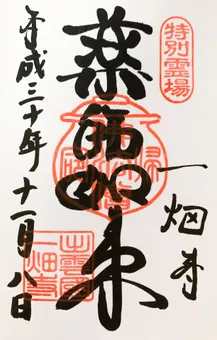 特別霊場
薬師如来
一畑寺
平成三十年十一月八日
出雲國
一畑寺